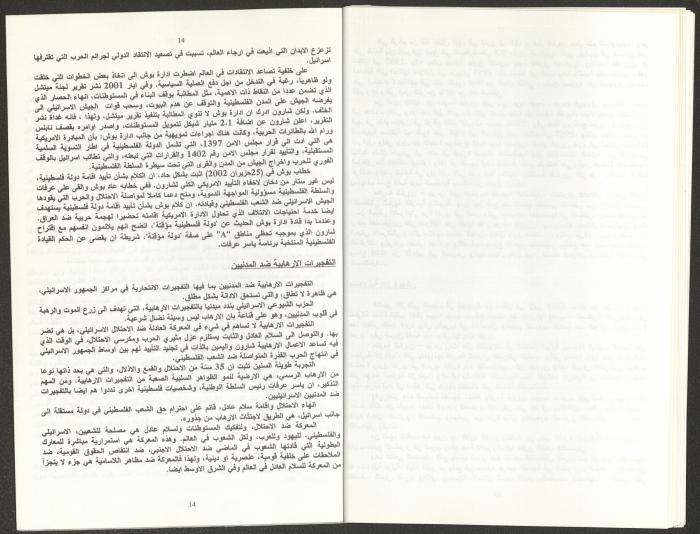 14
تزعزع الابدان التي اذيعت في ارجاء العالم، تسببت في تصعيد الانتقاد الدولي لجرائم الحرب التي تقترفها
اسرائيل.
على خلفية تصاعد الانتقادات في العالم اضطرت ادارة بوش الى اتخاذ بعض الخطوات التي خلقت
ولو ظاهريا، رغبة في التدخل من اجل دفع العملية السياسية. وفي ايار 2001 نشر تقرير لجنة ميتشل
الذي تضمن عددا من النقاط ذات الاهمية، مثل المطالبة بوقف البناء في المستوطنات، انهاء الحصار الذي
يفرضه الجيش على المدن الفلسطينية والتوقف عن هدم البيوت، وسحب قوات الجيش الاسرائيلي الى
الخلف. ولكن شارون ادرك ان ادارة بوش لا تنوي المطالبة بتنفيذ تقرير ميتشل، ولهذا، فانه غداة نشر
التقرير، اعلن شارون عن اضافة 2،1 مليار شيكل لتمويل المستوطنات، واصدر اوامره بقصف نابلس
ورام الله بالطائرات الحربية، وكانت هناك اجراءات تمويهية من جانب ادارة بوش: بأن المبادرة الامريكية
هي التي ادت الى قرار مجلس الامن 1397، التي تشمل الدولة الفلسطينية في اطار التسوية السلمية
المستقبلية، والتأييد لقرار مجلس الامن رقم 1402 والقرارات التي تبعته، والتي تطالب اسرائيل بالوقف
الفوري للحرب واخراج الجيش من المدن والقرى التي تحت سيطرة السلطة الفلسطينية.
خطاب بوش في (25حزيران 2002) اثبت بشكل حاد، ان الكلام بشأن تأييد اقامة دولة فلسطينية،
ليس غير ستار من دخان لاخفاء التأييد الامريكي الكلي لشارون. ففي خطابه عاد بوش والقى على عرفات
والسلطة الفلسطينية مسؤولية المواجهة الدموية، ومنح دعما كاملا لمواصلة الاحتلال والحرب التي يقودها
الجيش الاسرائيلي ضد الشعب الفلسطيني وقيادته. ان كلام بوش بشأن تأييد اقامة دولة فلسطينية يستهدف
ايضا خدمة احتياجات الائتلاف الذي تحاول الادارة الامريكية اقامته تحضيرا لهجمة حربية ضد العراق.
وعندما بدا قادة ادارة بوش الحديث عن "دولة فلسطينية مؤقتة"، اتضح انهم يلائمون انفسهم مع اقتراح
شارون الذي بموجبه تحظى مناطق "A" على صفة "دولة مؤقتة"، شريطة ان يقصى عن الحكم القيادة
الفلسطينية المنتخبة برئاسة ياسر عرفات.
التفجيرات الارهابية ضد المدنيين
التفجيرات الارهابية ضد المدنيين بما فيها التفجيرات الانتحارية في مراكز الجمهور الاسرائيلي،
هي ظاهرة لا تطاق، والتي تستحق الادانة بشكل مطلق.
الحزب الشيوعي الاسرائيلي يندد مبدئيا بالتفجيرات الارهابية، التي تهدف الى زرع الموت والرهبة
في قلوب المدنيين، وهو على قناعة بان الارهاب ليس وسيلة نضال شرعية.
التفجيرات الارهابية لا تساهم في شيء في المعركة العادلة ضد الاحتلال الاسرائيلي، بل هي تضر
بها. والتوصل الى السلام العادل والثابت يستلزم عزل مثيري الحرب ومكرسي الاحتلال، في الوقت الذي
فيه تساعد الاعمال الارهابية شارون واليمين بالذات في تجنيد التأييد لهم بين اوساط الجمهور الاسرائيلي
في انتهاج الحرب القذرة المتواصلة ضد الشعب الفلسطيني.
التجربة طويلة السنين تثبت ان 35 سنة من الاحتلال والقمع والاذلال، والتي هي بحد ذاتها نوعا
من الارهاب الرسمي، هي الارضية للنمو الظواهر السلبية الصعبة من التفجيرات الارهابية. ومن المهم
التذكير، ان ياسر عرفات رئيس السلطة الوطنية، وشخصيات فلسطينية اخرى نددوا هم ايضا بالتفجيرات
ضد المدنيين الاسرائيليين.
انهاء الاحتلال واقامة سلام عادل، قائم على احترام حق الشعب الفلسطيني في دولة مستقلة الى
جانب اسرائيل، هي الطريق لاجتثاث الارهاب من جذوره.
المعركة ضد الاحتلال، ولتفكيك المستوطنات ولسلام عادل هي مصلحة للشعبين، الاسرائيلي
والفلسطيني، لليهود وللعرب، ولكل الشعوب في العالم. وهذه المعركة هي استمرارية مباشرة للمعارك
البطولية التي قادتها الشعوب في الماضي ضد الاحتلال الاجنبي، ضد انتقاص الحقوق القومية، ضد
الملاحقات على خلفية قومية، عنصرية او دينية، ولهذا فالمعركة ضد مظاهر اللاسامية هي جزء لا يتجزأ
من المعركة للسلام العادل في العالم وفي الشرق الاوسط ايضا.
14